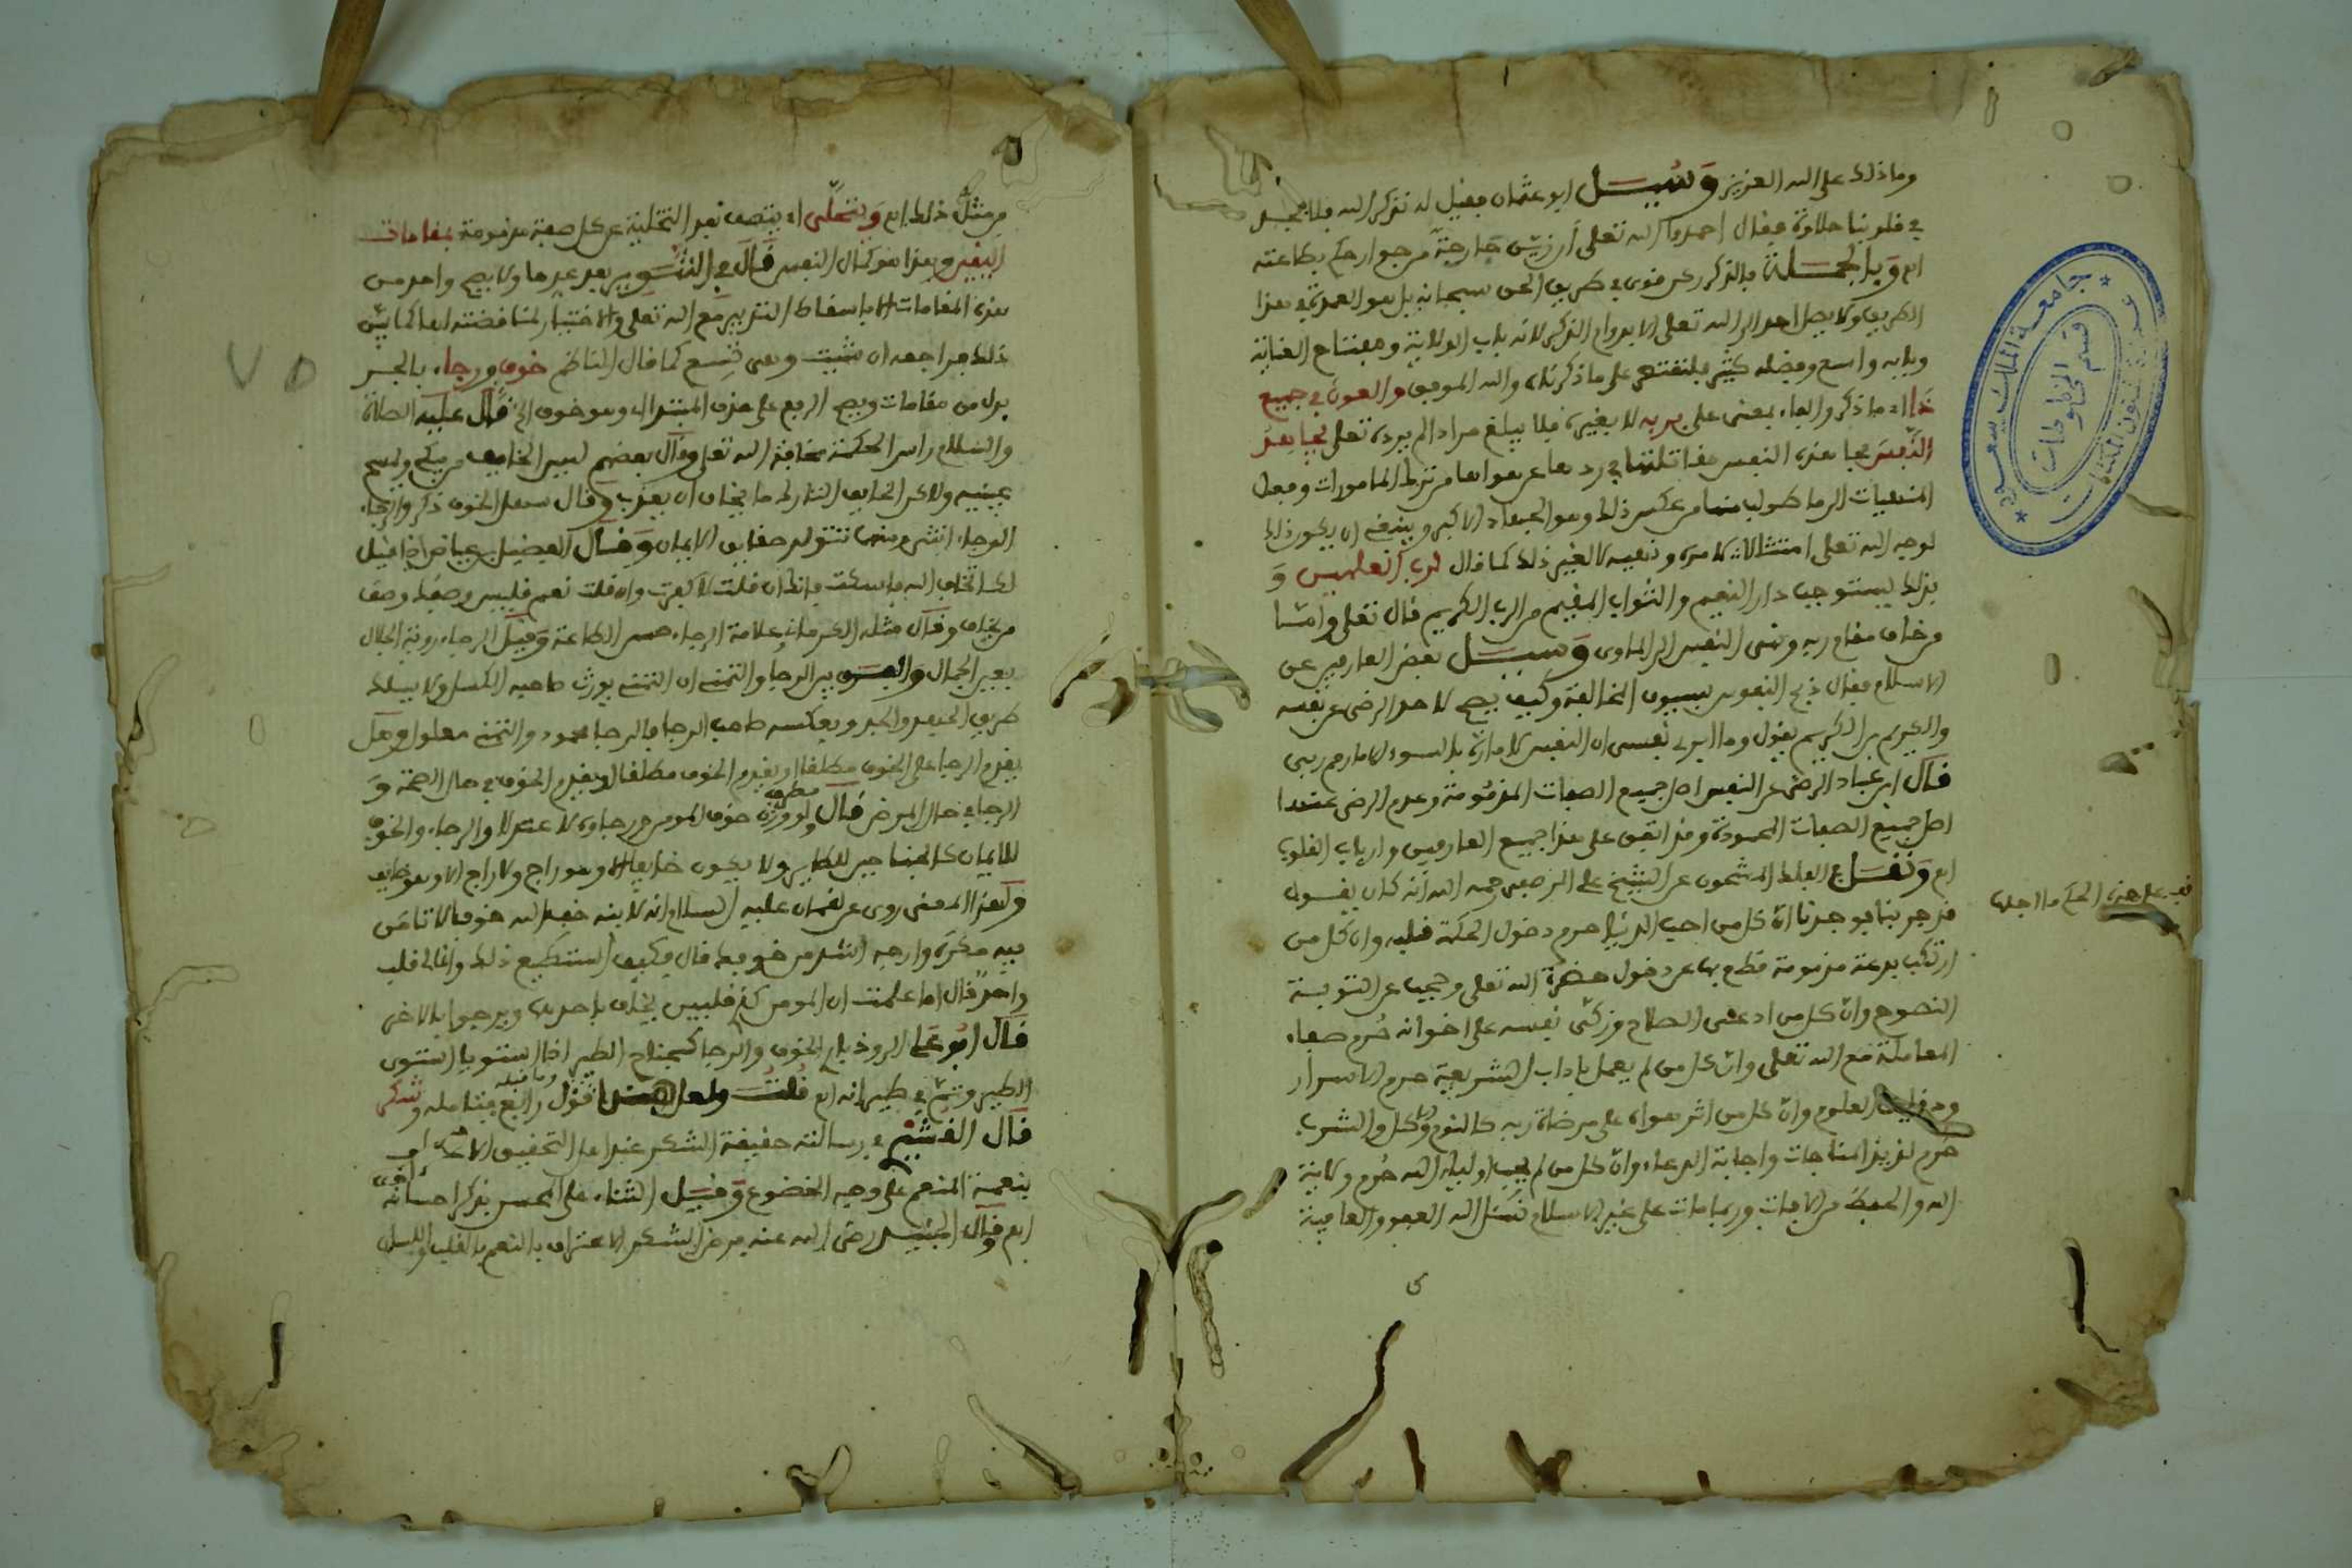 وما ذلك على الله العزيز وسيل ابو عثمان فقيل له نذكر الله فلا نجد
في قلوبنا حلاوة فقال احمدوا الله تعلى ان زين جارحة من جوارحكم بطاعته
اه وبالجملة فالذكر ركن قوي في طريق الحق سبحانه بل هو العمدة في هذا
الطريق ولا يصل احد الى الله تعلى الا بدوام الذكر لانه باب الولاية ومفتاح العناية
وبابه واسع وفضله كثير فلنقتصر على ما ذكرناه والله الموفق والعون في جميع
ذا اي ما ذكر والباء بمعنى على بربه لا بغيره فلا يبلغ مراد الم يرده تعلى يجاهد
النفس يجاهد النفس مقاتلتها في ردها عن هواها من ترك المامورات وفعل
المنهيات الى ما طولب منها من عكس ذلك وهو الجهاد الاكبر وينبغي ان يكون ذلك
لوجه الله تعلى امتثالا لامره ونهيه لا لغير ذلك كما قال لرب العلمين و
بذلك يستوجب دار النعيم والثواب المقيم من الرب الكريم قال تعلى وامّا
من خاف مقام ربه ونهى النفس الى الماوى وسيل بعض العارفين عن
الاسلام فقال ذبح النفوس بسيوف المخالفة وكيف يصح لاحد الرضى عن نفسه
والكريم بن الكريم يقول وما ابرئ نفسي ان النفس لامارة بالسوء الا ما رحم ربي
قال ابن عباد الرضى عن النفس اصل جميع الصفات المذمومة وعدم الرضى عنها
اصل جميع الصفات المحمودة وقد اتفق على هذا جميع العارفين وارباب القلوب
اه ونقل في الفلك المشحون عن الشيخ علي المرصفي رحمه الله انه كان يقول
قد جربنا فوجدنا ان كل من احب الدنيا حرم دخول الحكمة قلبه وان كل من
ارتكب بدعة مذمومة قطع بها عن دخول حضرة الله تعلى وحجب عن التوبة
النصوح وان كل من ادعى الصلاح وزكى نفسه على اخوانه حُرم صفاء
المعاملة مع الله تعلى وان كل من لم يعمل باداب الشريعة حرم الاسرار
ودقايق العلوم وان كل من اثر هواه على مرضاة ربه كالنوم والاكل والشرب
حُرم لذيذ المناجات واجابة الدعاء وان كل من لم يحب اولياء الله حُرم ولاية
الله والحفظ من الافات وربما مات على غير الاسلام نسئل الله العفو والعافية
قف على هذه الحكم ما اجلها
جامعة الملك سعود
قسم المخطوطات
من مثل ذلك اه ويتحلى اي يتصف بعد التخلية عن كل صفة مذمومة بمقامات
اليقين وهذا هو كمال النفس قال في التنوير بعد عدها ولا يصح واحد من
هذه المقامات الا باسقاط التدبير مع الله تعلى والاختيار لمناقضته لها كما بين
ذلك فراجعه ان شيت وهي تسع كما قال الناظم خوف ورجاء بالجر
بدل من مقامات ويصح الرفع على حذف المبتدا اي وهو خوف الخ قال عليه الصلاة
والسلام راس الحكمة مخافة الله تعلى وقال بعضهم ليس الخايف من يبكي ويمسح
عينيه ولاكن الخايف التارك ما يخاف ان يعذب وقال سهل الخوف ذكر والرجاء
الرجاء انثى ومنهما تتولد حقايق الايمان وقال الفضيل بن عياض اذا قيل
لك اتخاف الله فاسكت فانك ان قلت لا كفرت وان قلت نعم فليس وصفك وصف
من يخاف وقال مثله الكرماني علامة الرجاء حسن الطاعة وقيل الرجاء روية الجلال
بعين الجمال والفرق بين الرجا والتمني ان التمني يورث صاحبه الكسل ولا يسلك
طريق الجهد والجد وبعكسه صاحب الرجا فالرجا محمود والتمني معلول وهل
يقدم الرجا على الخوف مطلقا او يقدم الخوف مطلقا او يقدم الخوف في حال الصحة و
الرجا في حال المرض قال مطرف لو وزن خوف المومن ورجاوه لاعتدلا والرجاء والخوف
للايمان كالجناحين للطاير ولا يكون خايفا الا وهو راج ولا راج الا وهو خايف
ولهذا المعنى روى عن لقمان عليه السلام انه قال لابنه خف الله خوفا لا تامن
فيه مكره وارجه اشد من خوفك قال فكيف استطيع ذلك وانما لي قلب
واحد قال اما علمت ان المومن كذي قلبين يخاف باحدهما ويرجوا بالاخر
قال ابو علي الروذباري الخوف والرجا كجناحي الطير اذا استويا استوى
الطير وتم في طيرانه اه قلت ولعل هذا قول رابع فتامله وشكر
قال القشيري في رسالته حقيقة الشكر عند اهل التحقيق الاعتراف
بنعمة المنعم على وجه الخضوع وقيل الثناء على المحسن بذكر احسانه
اه وقال الجنيد رضي الله عنه فرض الشكر الاعتراف بالنعم بالقلب واللسان